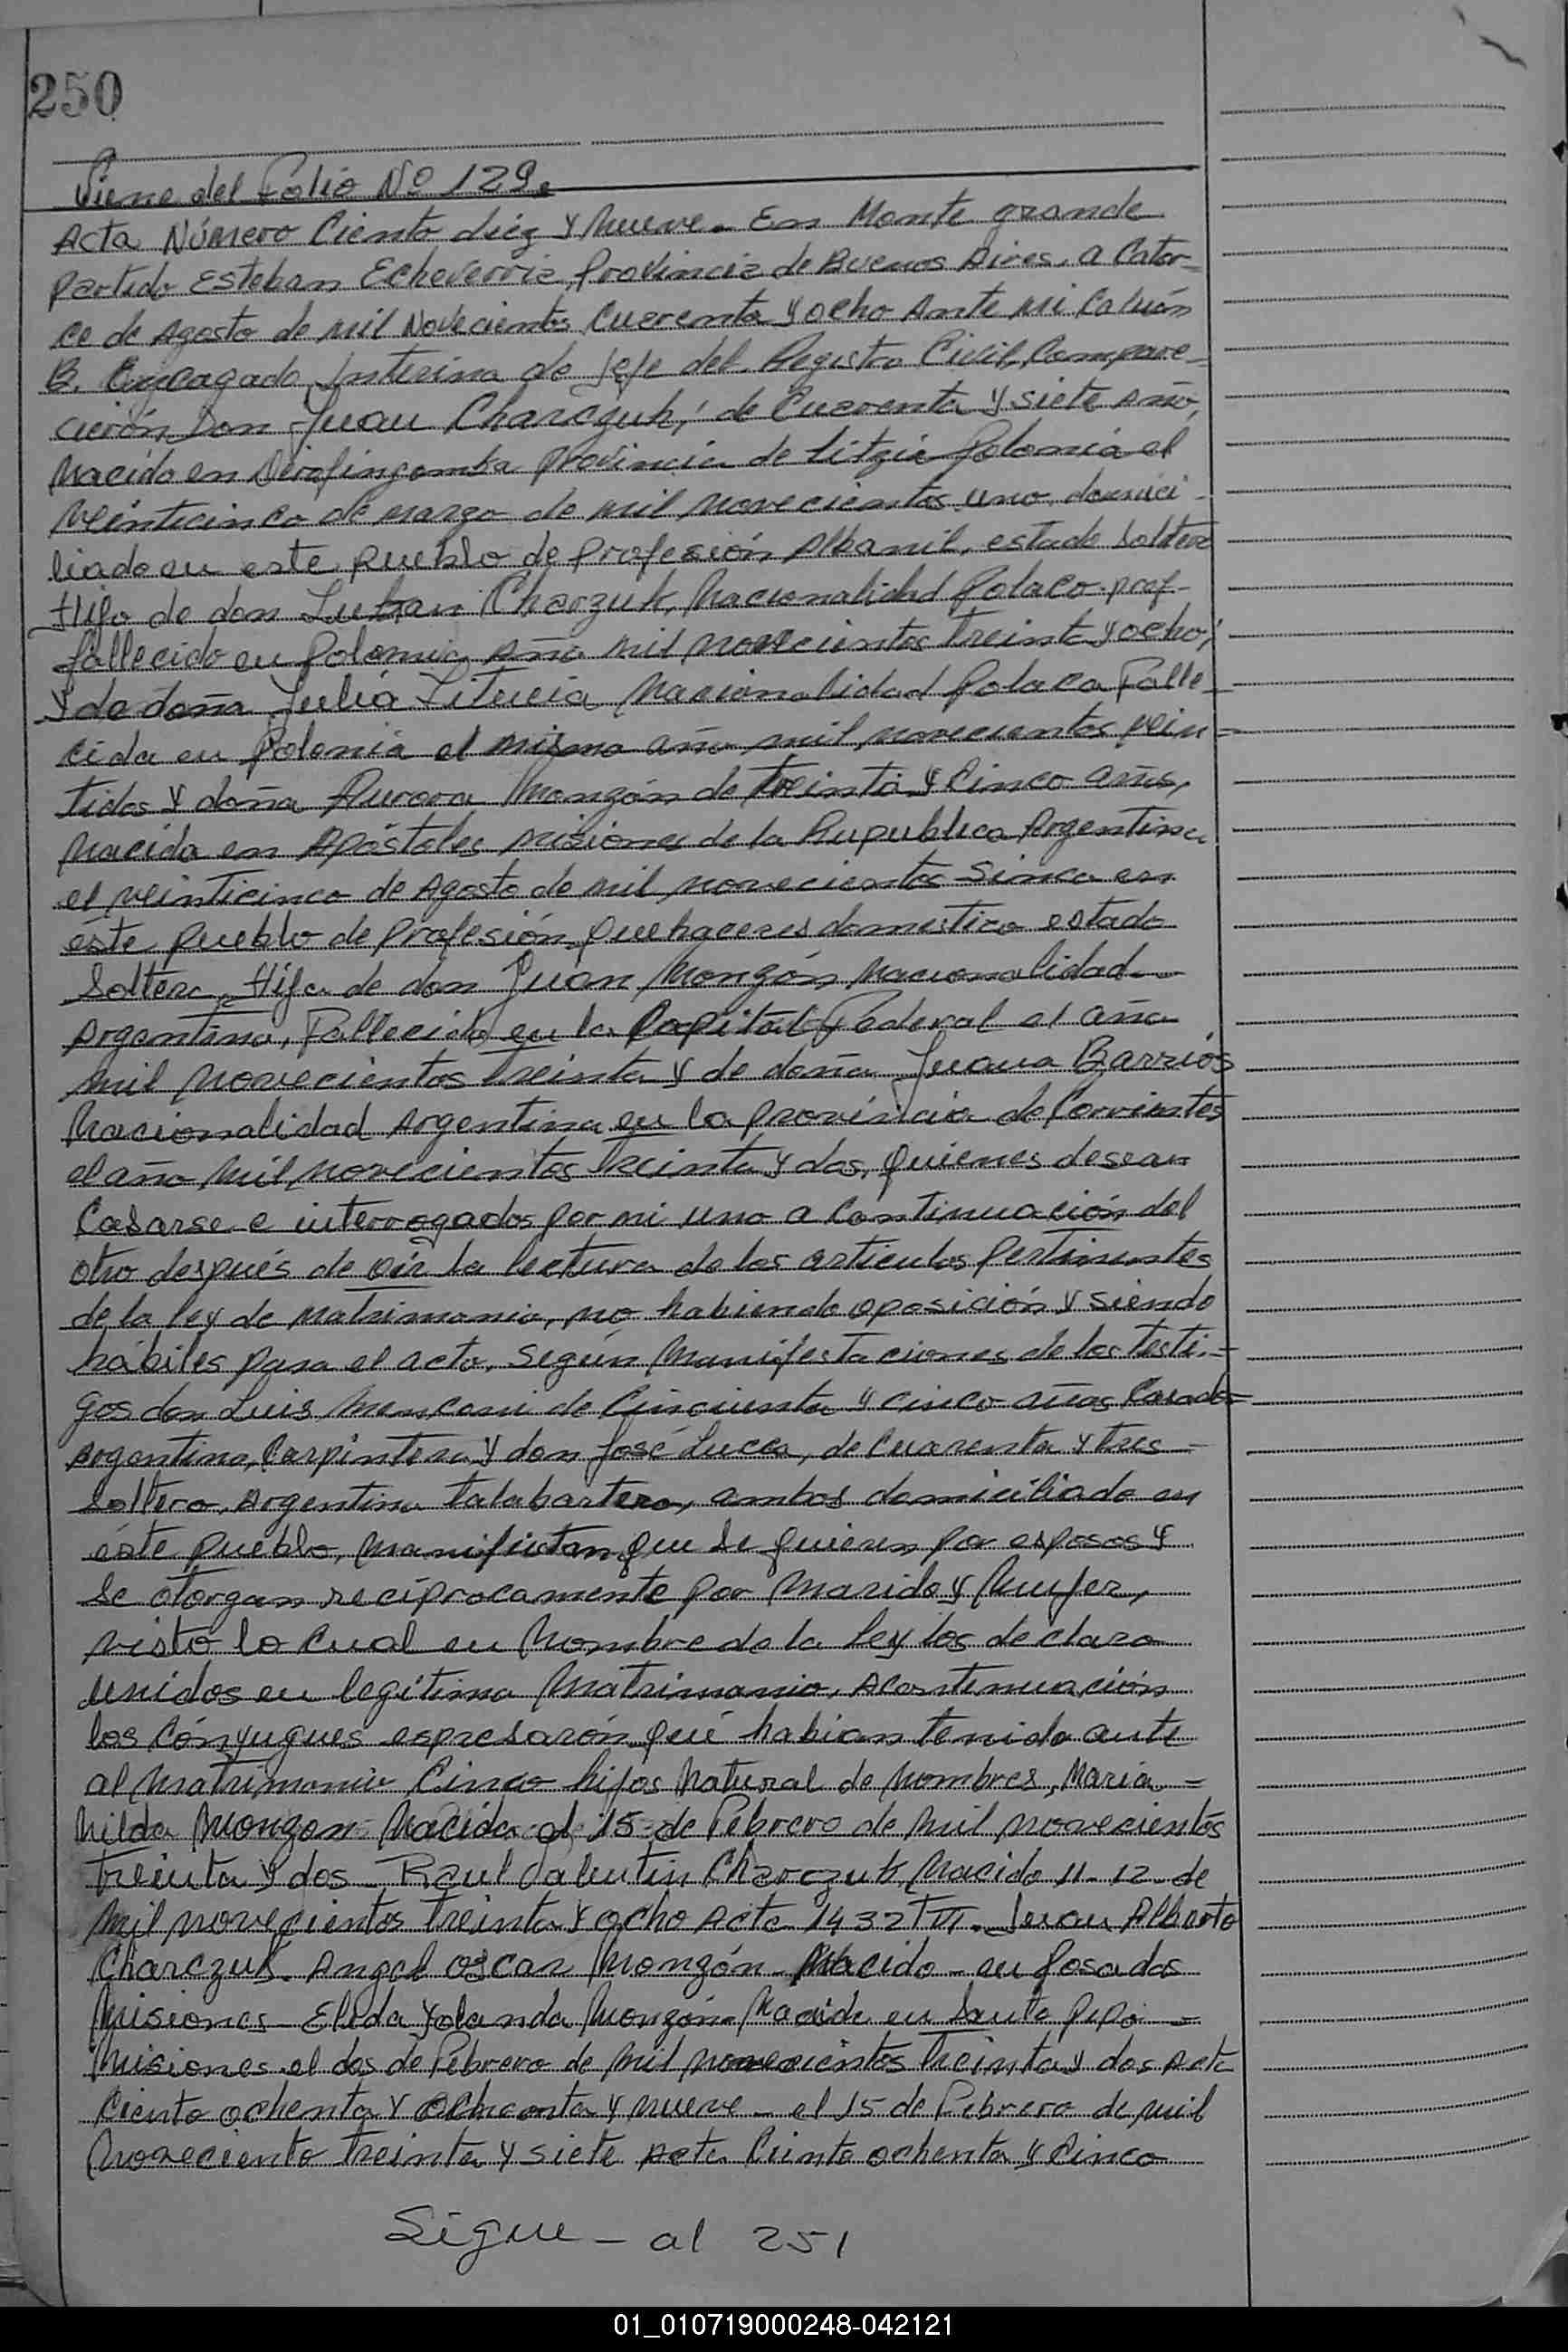 250
Viene del Folio Nº 129.
Acta Número Ciento diez y Nueve. En Monte grande
Partido Esteban Echeverria, Provincia de Buenos Aires, a Cator-
ce de Agosto de mil Novecientos Cuarenta y ocho Ante mi
B. Interina de Jefe del Registro Civil, Compare-
cierón Don Juan Charczuk, de Cuarenta y siete año,
Nacido en provincia de Polonia el
Veinticinco de marzo de mil novecientos uno domici-
liado en este pueblo de profesión Albanil, estado Soltero
Hijo de don Charzuk, Nacionalidad Polaco prof-
fallecido en Polonia año mil novecientos treinta y ocho,
y de doña Julia Nacionalidad Polaca Falle-
cida en Polonia el mismo año mil novecientos vein-
tidos y doña Aurora Monzón de treinta y Cinco años,
Nacida en Apóstoles misiones de la Rupublica Argentina
el veinticinco de Agosto de mil novecientos Sinco en
este pueblo de profesión quehaceres domestico estado
Soltera, Hija de don Juan Monzón Nacionalidad
Argentina, Fallecido en la Capital Federal el año
mil novecientos treinta y de doña Juana Barrios
Nacionalidad Argentina en la provincia de Corrientes
el año mil novecientos treinta y dos, quienes desean
Casarse e interrogados por mi uno a continuación del
otro después de oír la lectura de los artículos pertinentes
de la ley de matrimonio, no habiendo oposición y siendo
hábiles para el acto, según manifestaciones de los testi-
gos don Luis de Cincuenta y cinco años Casado
Argentino, Carpintero y don José Lucca, de Cuarenta y tres
Soltero, Argentino talabartero, ambos domiciliado en
éste pueblo, manifiestan que se quieren por esposos y
se otorgan recíprocamente por Marido y Mujer,
visto lo Cual en Nombre de la ley los declaro
unidos en legítimo Matrimonio, Acontinuación
los Cónyugues espresarón qué habian tenido ante
al Matrimonio Cinco hijos Natural de Nombres, Maria
Nilda Monzon Nacida el 15 de Febrero de mil novecientos
treinta y dos - Raul Valentin Charczuk, Nacido 11-12 de
mil novecientos treinta y ocho Acta 1432 T VI. Juan Alberto
Charczuk. Angel Oscar Monzón - Nacido - en Posadas
Misiones - Elida Yolanda Monzón Nacida en Santo Pipó
Misiones el dos de Febrero de mil novecientos treinta y dos Acta
Ciento ochenta y ochenta y nueve - el 15 de Febrero de mil
Novecientos treinta y siete Acta Ciento ochenta y Cinco
Sigue - al 251
01_010719000248-042121